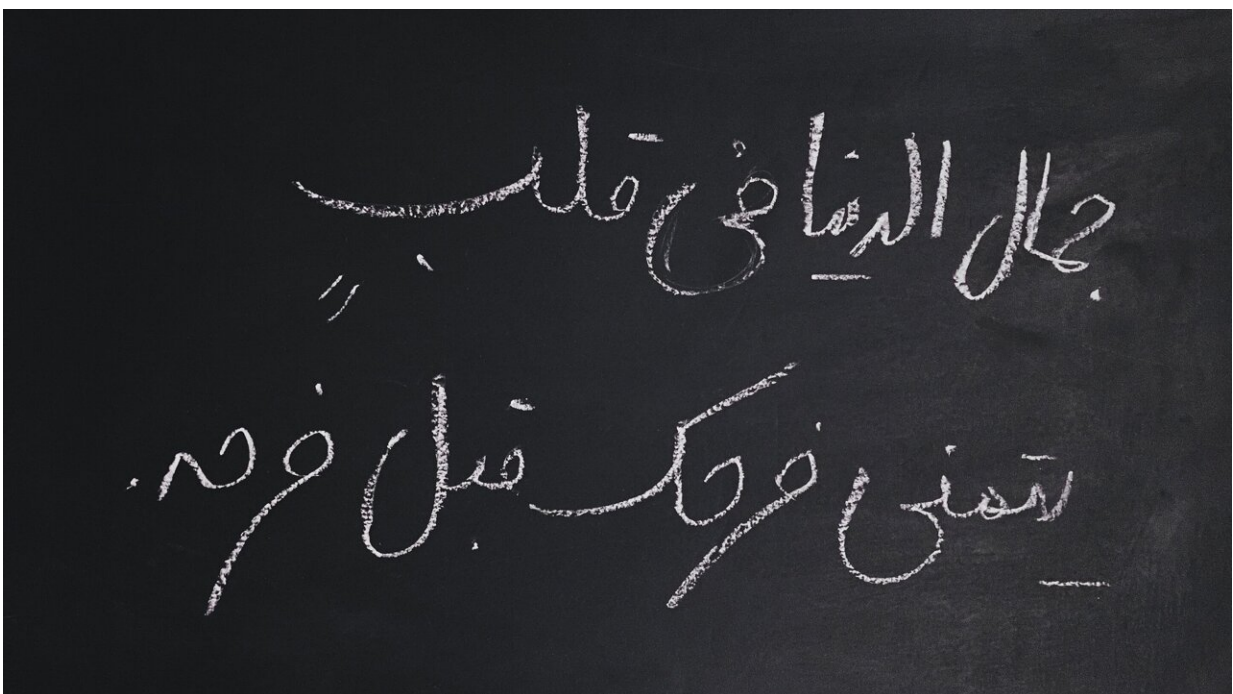 جمال الدنيا فى قلبٍ
يتمنى فرحك قبل فرحه.